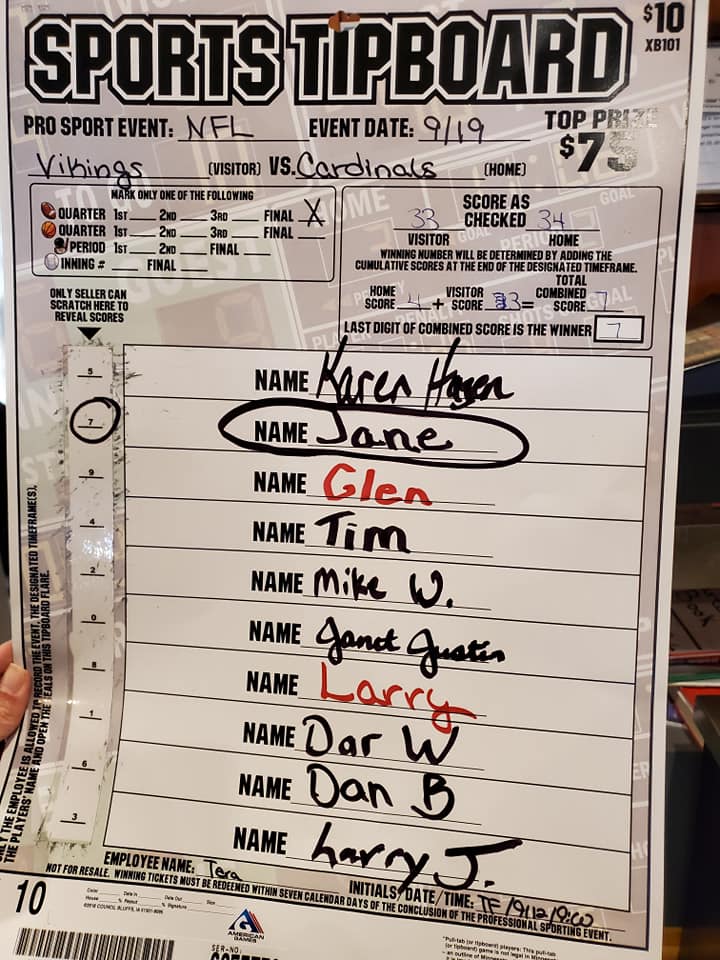 SPORTS TIPBOARD
$10
XB101
PRO SPORT EVENT: NFL EVENT DATE: 9/19
TOP PRIZE
$75
Vikings (VISITOR) VS. Cardinals (HOME)
MARK ONLY ONE OF THE FOLLOWING
QUARTER 1ST 2ND 3RD FINAL X
QUARTER 1ST 2ND 3RD FINAL
PERIOD 1ST 2ND FINAL
INNING # FINAL
SCORE AS
33 CHECKED 34
VISITOR HOME
WINNING NUMBER WILL BE DETERMINED BY ADDING THE
CUMULATIVE SCORES AT THE END OF THE DESIGNATED TIMEFRAME.
TOTAL
HOME VISITOR COMBINED
SCORE 4 + SCORE 3 = SCORE 7
LAST DIGIT OF COMBINED SCORE IS THE WINNER 7
ONLY SELLER CAN
SCRATCH HERE TO
REVEAL SCORES
5 NAME Karen Hagen
7 NAME Jane
9 NAME Glen
4 NAME Tim
2 NAME Mike W.
0 NAME Janet Justin
8 NAME Larry
1 NAME Dar W
6 NAME Dan B
3 NAME Larry J.
ONLY THE EMPLOYEE IS ALLOWED TO RECORD THE EVENT, THE DESIGNATED TIMEFRAME(S),
THE PLAYERS' NAME AND OPEN THE SEALS ON THIS TIPBOARD FLARE.
EMPLOYEE NAME: Tera
INITIALS/DATE/TIME: TF
NOT FOR RESALE. WINNING TICKETS MUST BE REDEEMED WITHIN SEVEN CALENDAR DAYS OF THE CONCLUSION OF THE PROFESSIONAL SPORTING EVENT.
10
AMERICAN
GAMES
SER-NO.